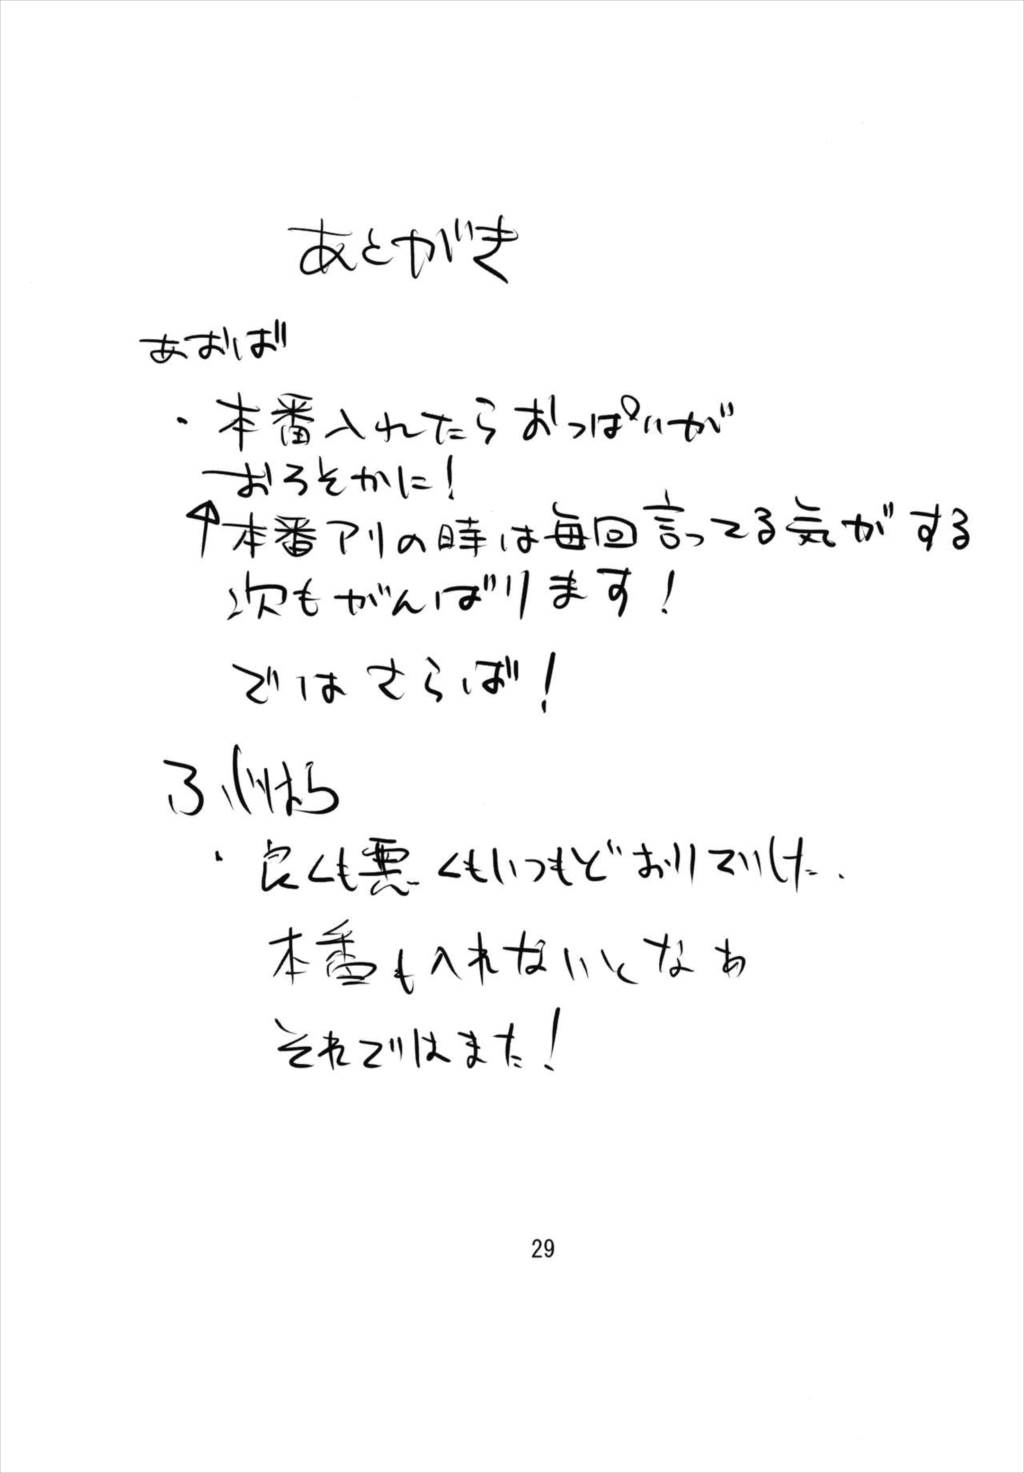 あとがき
あおば
・本番入れたらおっぱいが
おろそかに!
↑本番アリの時は毎回言ってる気がする
次もがんばります!
ではさらば!
ふじはら
・良くも悪くもいつもどおりでしたー.
本番も入れないとなぁ
それではまた!
29